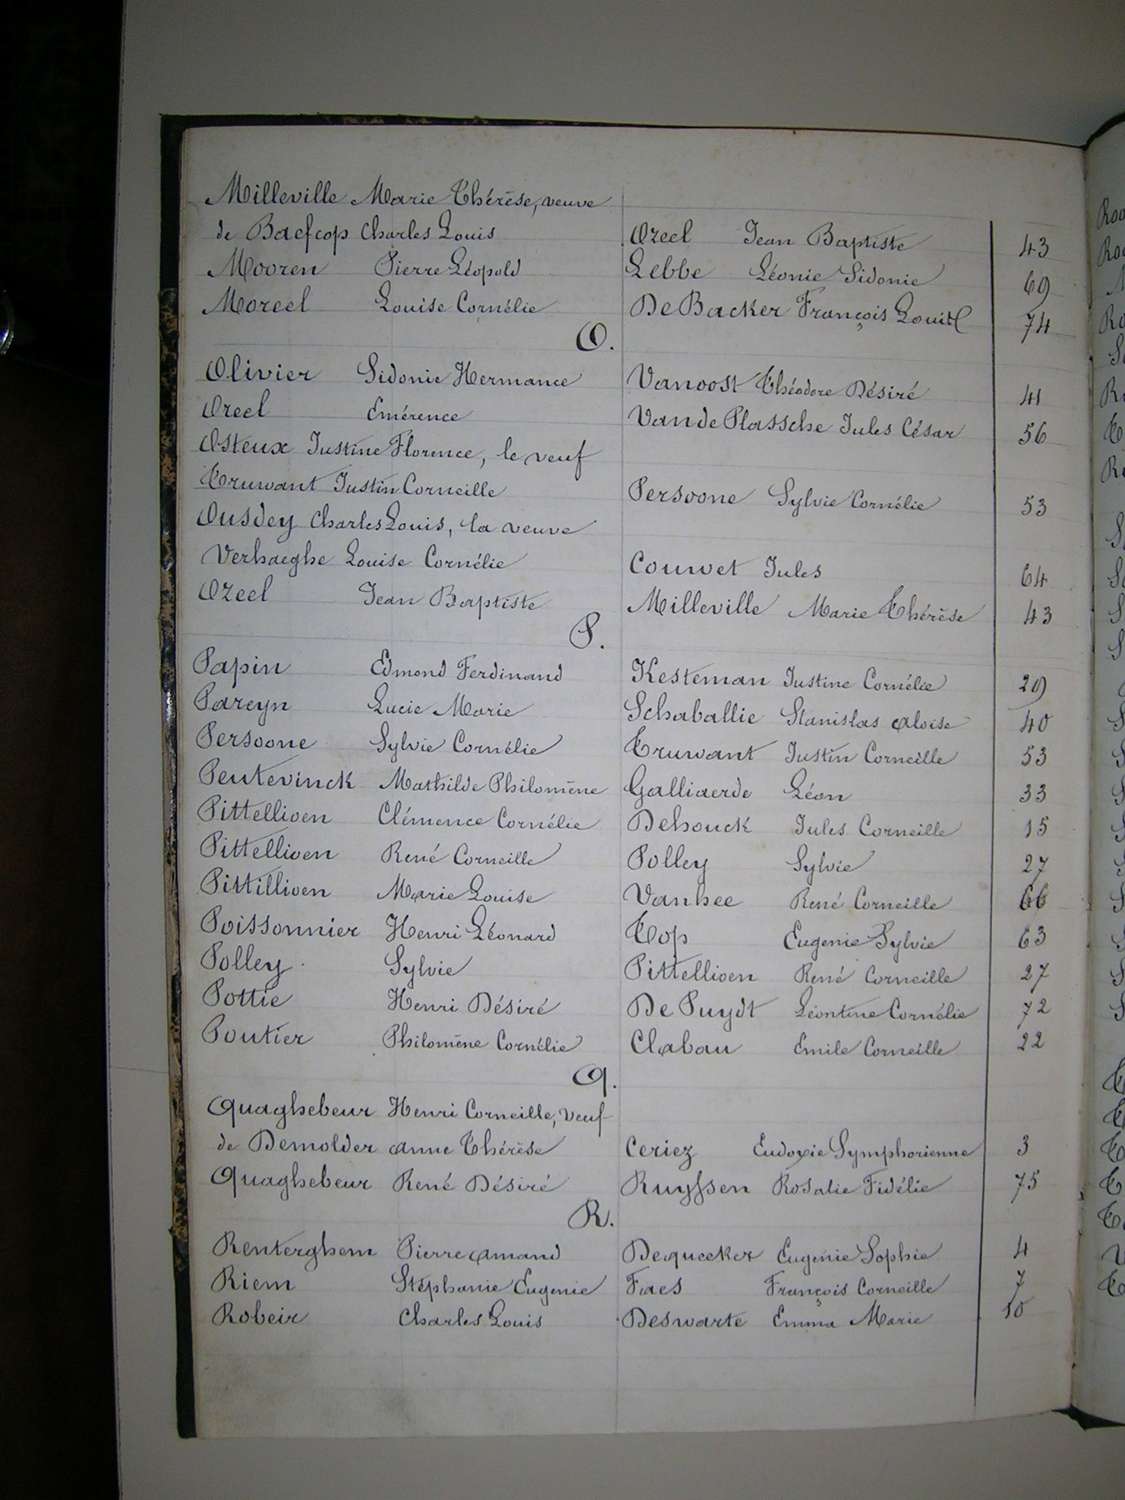 Milleville Marie Thérèse, veuve
de Baefcop Charles Louis Ozeel Jean Baptiste 43
Mooren Pierre Léopold Lebbe Léonie Sidonie 69
Moreel Louise Cornélie De Backer François Louis 74
O.
Olivier Sidonie Hermance Vanoost Théodore Désiré 41
Ozeel Emérence Vande Plassche Jules César 56
Osteux Justine Florence, le veuf
Truwant Justin Corneille Persoone Sylvie Cornélie 53
Ousdey Charles Louis, la veuve
Verhaeghe Louise Cornélie Couwet Jules 64
Ozeel Jean Baptiste Milleville Marie Thérèse 43
P.
Papin Edmond Ferdinand Kesteman Justine Cornélie 29
Pareyn Lucie Marie Schaballie Stanislas Aloise 40
Persoone Sylvie Cornélie Truwant Justin Corneille 53
Peutevinck Mathilde Philomène Galliaerde Léon 33
Pittellioen Clémence Cornélie Dehouck Jules Corneille 15
Pittellioen René Corneille Polley Sylvie 27
Pittillioen Marie Louise Vanhee René Corneille 66
Poissonnier Henri Léonard Top Eugenie Sylvie 63
Polley Sylvie Pittellioen René Corneille 27
Pottie Henri Désiré De Puydt Léontine Cornélie 72
Poutier Philomène Cornélie Clabau Emile Corneille 22
Q.
Quaghebeur Henri Corneille, Veuf
de Demolder Anne Thérèse Ceriez Eudoxie Symphorienne 3
Quaghebeur René Désiré Ruyssen Rosalie Fidélie 75
R.
Renterghem Pierre Amand Dequeeker Eugenie Sophie 4
Riem Stéphanie Eugenie Faes François Corneille 7
Robeir Charles Louis Deswarte Emma Marie 10